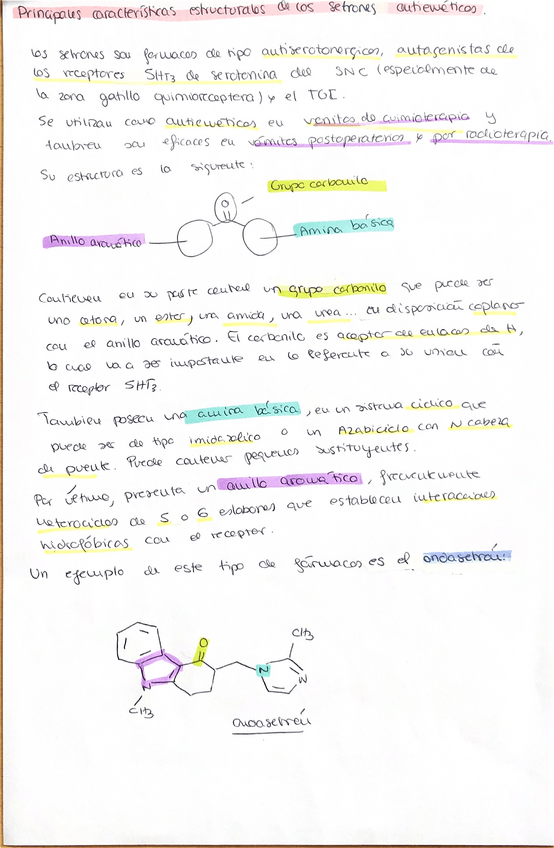 Principales características estructurales de los setrones antieméticos.
Los setrones son fármacos de tipo antiserotonérgicos, antagonistas de
los receptores 5HT3 de serotonina del SNC (especialmente de
la zona gatillo quimiorreceptora) y el TGI.
Se utilizan como antieméticos en vómitos de quimioterapia y
también son eficaces en vómitos postoperatorios y por radioterapia
Su estructura es la siguiente:
Grupo carbonilo
O
Anillo aromático
Amina básica
Contienen en su parte central un grupo carbonilo que puede ser
una cetona, un ester, una amida, una urea... en disposición coplanar
con el anillo aromático. El carbonilo es aceptor de enlaces de H,
lo cual va a ser importante en lo referente a su unión con
el receptor 5HT3.
También poseen una amina básica, en un sistema cíclico que
puede ser de tipo imidazólico o un Azabiciclo con N cabeza
de puente. Puede contener pequeños sustituyentes.
Por último, presenta un anillo aromático, frecuentemente
heterociclos de 5 o 6 eslabones que establecen interacciones
hidrofóbicas con el receptor.
Un ejemplo de este tipo de fármacos es el ondasetrón:
O
CH3
N
N
N
CH3
ondasetrón